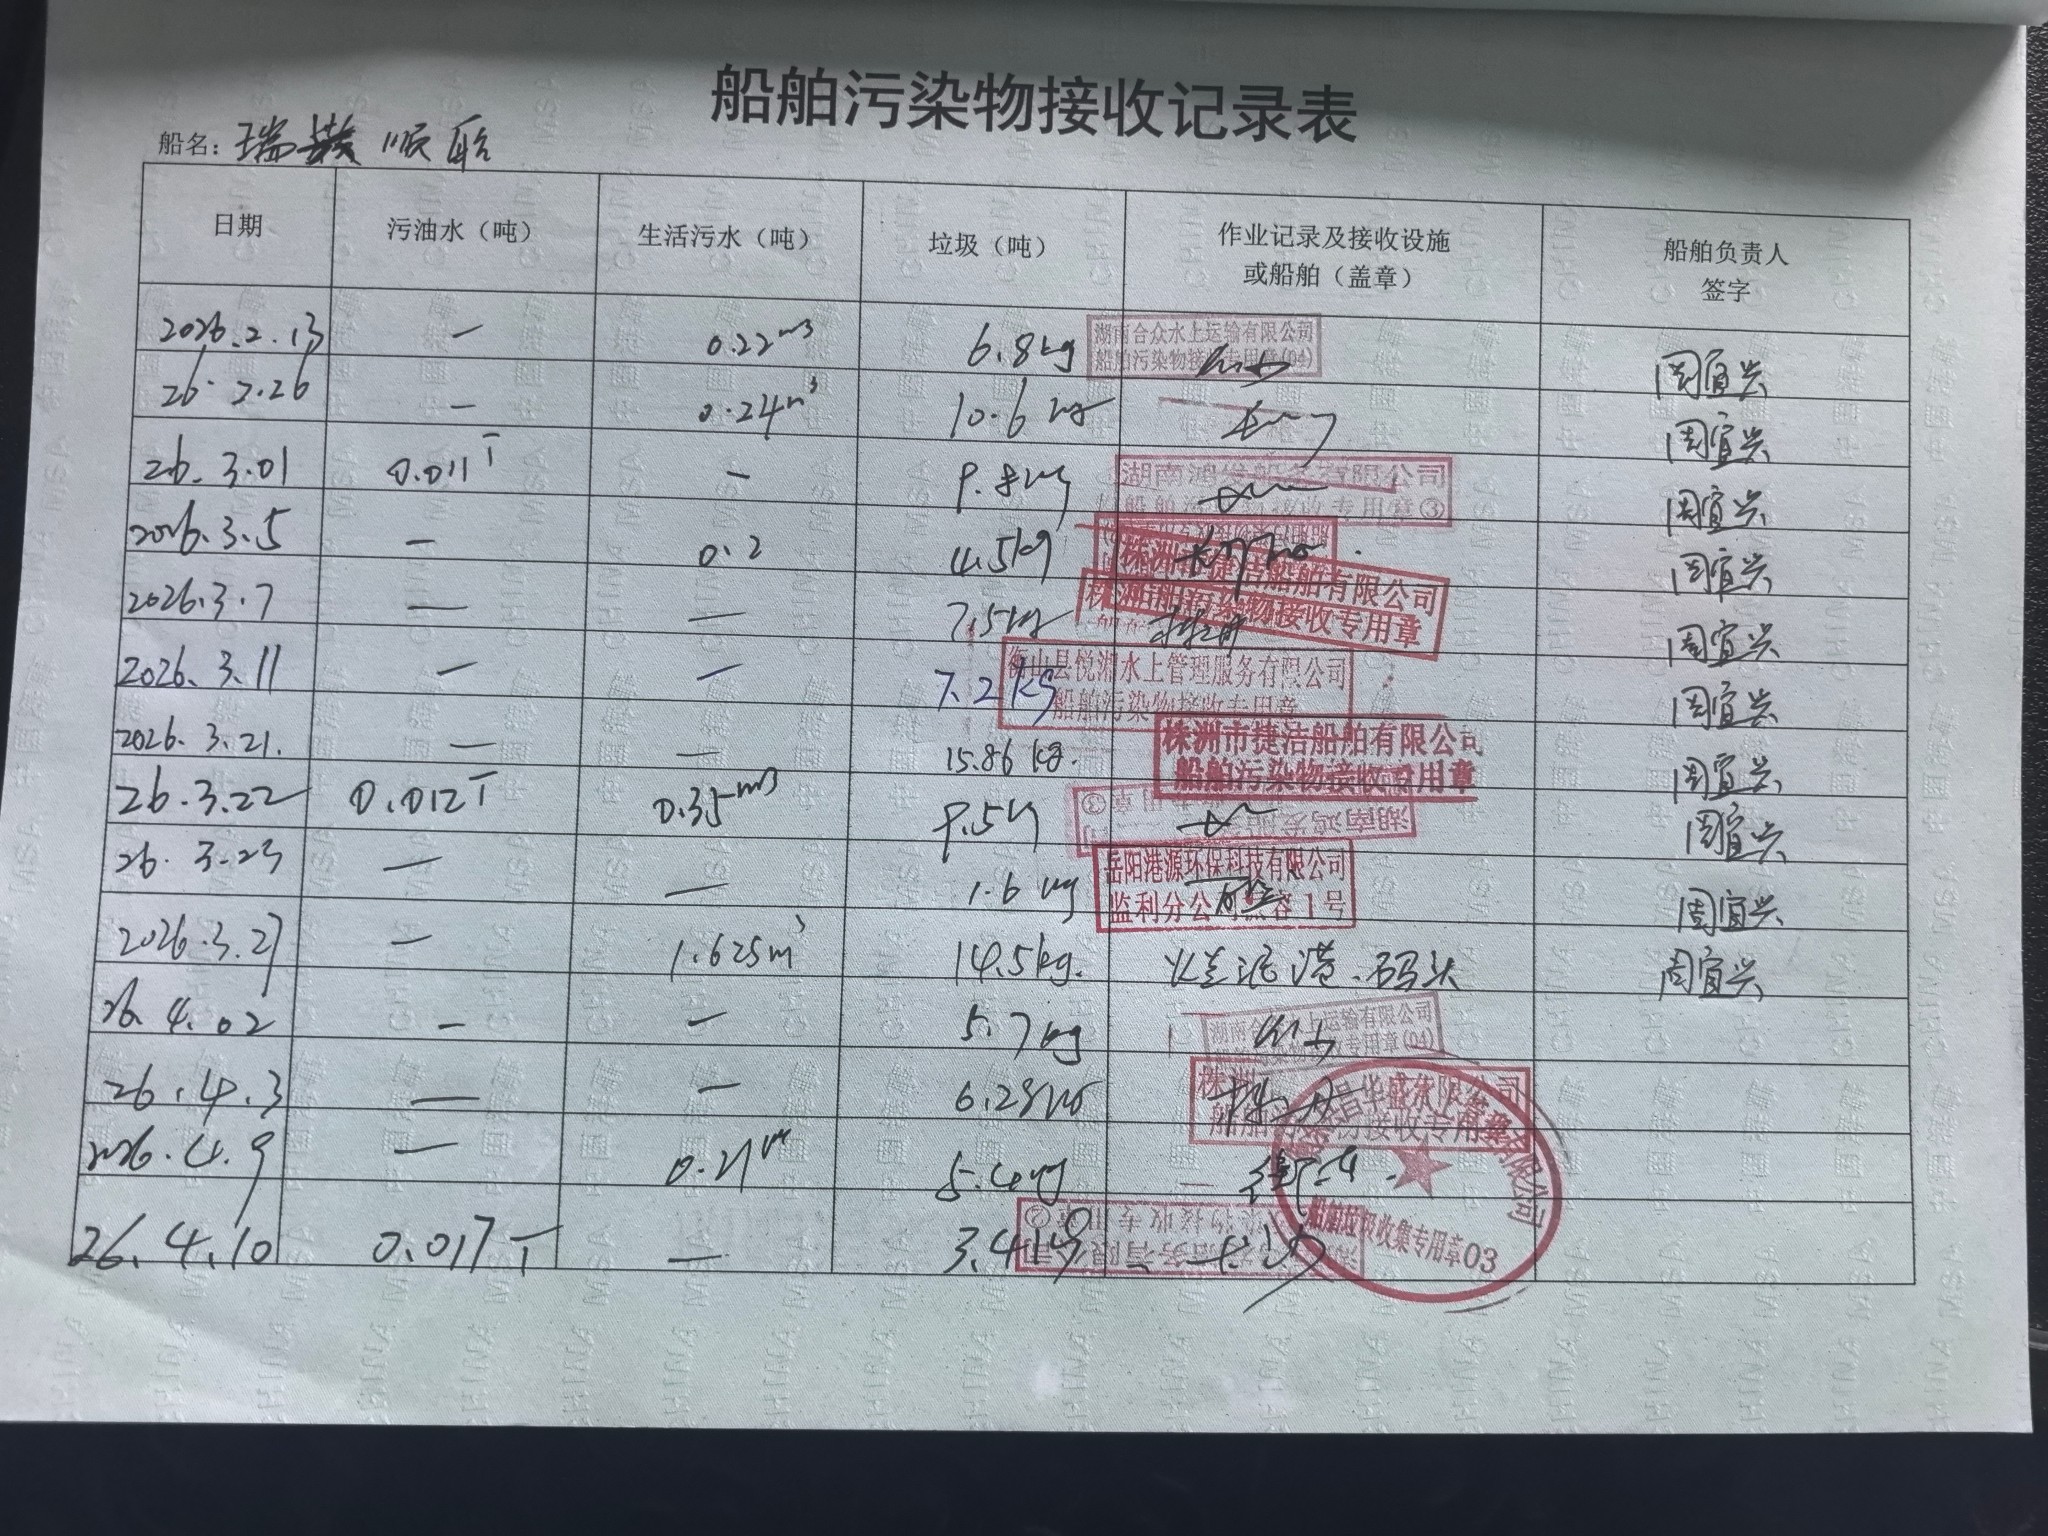 船舶污染物接收记录表
船名：瑞 顺 船
日期 污油水（吨） 生活污水（吨） 垃圾（吨） 作业记录及接收设施或船舶（盖章） 船舶负责人签字
2026.2.13 — 0.22m³ 6.8kg 湖南合众水上运输有限公司 船舶污染物接收专用章(04) 周宜兴
26.2.26 — 0.24m³ 10.6kg 周宜兴
26.3.01 0.011T — 9.8kg 湖南鸿发船务有限公司 船舶污染物接收专用章③ 周宜兴
2026.3.5 — 0.2 4.5kg 株洲市捷洁船舶有限公司 周宜兴
2026.3.7 — — 7.5kg 株洲市捷洁船舶有限公司 船舶污染物接收专用章 周宜兴
2026.3.11 — — 7.2kg 衡山县悦湘水上管理服务有限公司 船舶污染物接收专用章 周宜兴
2026.3.21. — — 15.86kg. 株洲市捷洁船舶有限公司 船舶污染物接收专用章 周宜兴
26.3.22 0.012T 0.35m³ 9.5kg 湖南鸿发 周宜兴
26.3.23 — — 1.6kg 岳阳港源环保科技有限公司 监利分公司 1号 周宜兴
2026.3.27 — 1.625m³ 14.5kg. 港.码头 周宜兴
26.4.02 — — 5.7kg 湖南合众水上运输有限公司 专用章(04)
26.4.3 — — 6.28kg 株洲 有限公司 船舶污染物接收专用章
2026.4.9 — 0.21m³ 5.4kg 有限公司 船舶垃圾收集专用章03
26.4.10 0.017T — 3.4kg 长沙